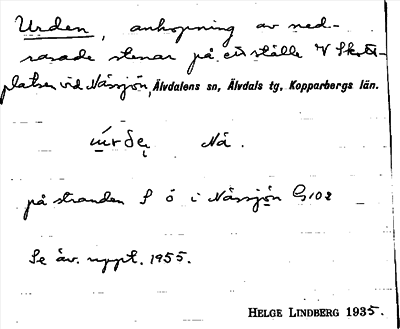 Urden, anhopning av ned-
rasade stenar på ett ställe V Skott-
platsen vid Nässjön, Älvdalens sn, Älvdals tg, Kopparbergs län.
Nä.
på stranden S ö i Nässjön G102
Se äv. uppt. 1955.
HELGE LINDBERG 1935.